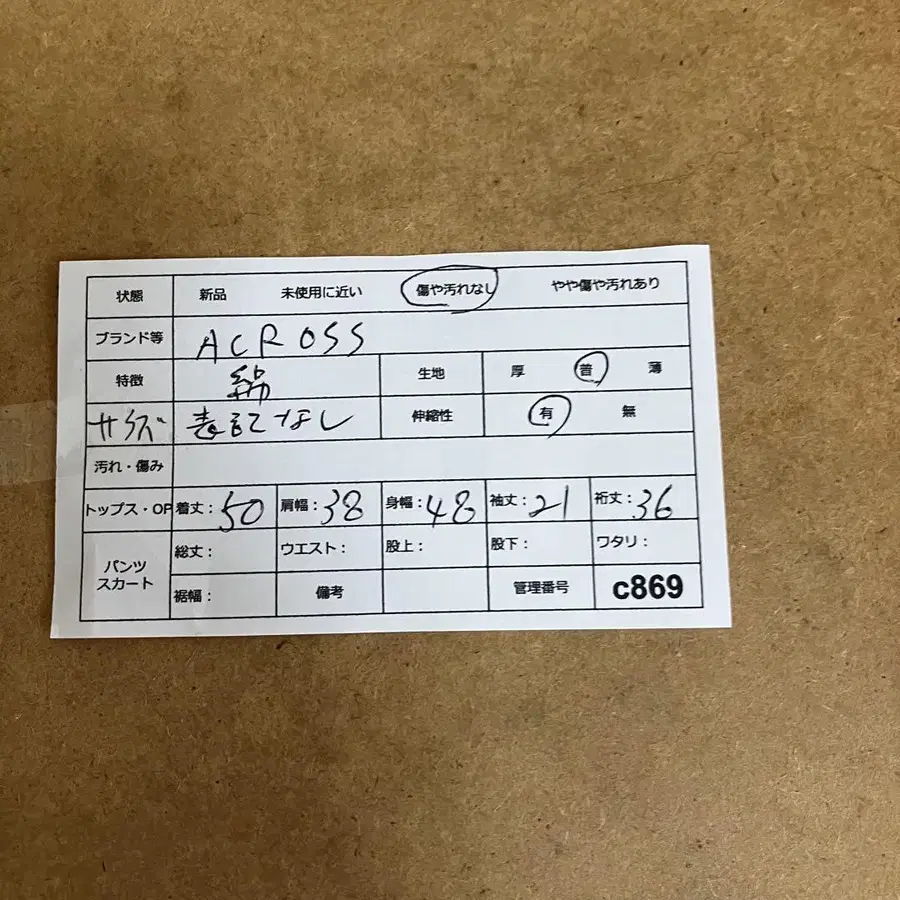 状態 新品 未使用に近い 傷や汚れなし やや傷や汚れあり
ブランド等 ACROSS
特徴 綿 生地 厚 普 薄
サイズ 表記なし 伸縮性 有 無
汚れ・傷み
トップス・OP 着丈：50 肩幅：38 身幅：48 袖丈：21 裄丈：36
パンツ スカート 総丈： ウエスト： 股上： 股下： ワタリ：
裾幅： 備考 管理番号 c869